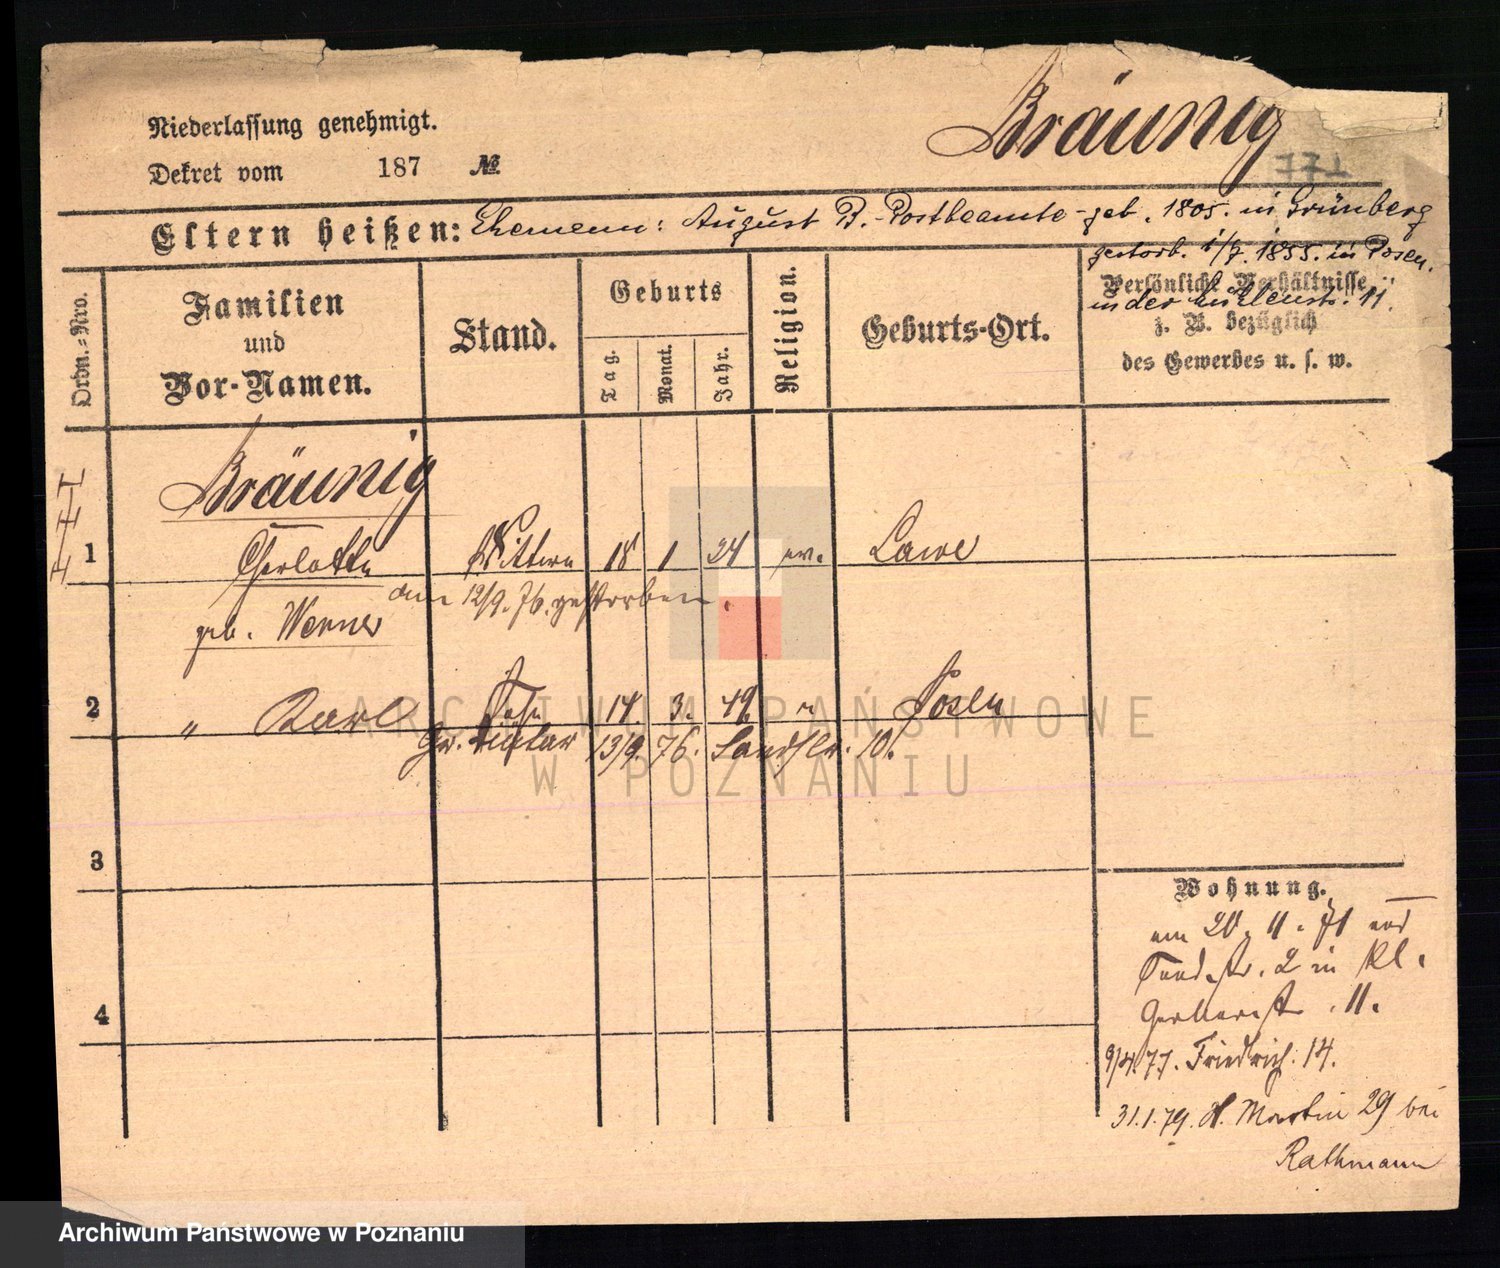 Bräunig
Niederlassung genehmigt.
Dekret vom 187 №
771
Eltern heißen: Ehemann: August B. - Postbeamte - geb. 1805. in Grünberg
gestorb. 1/7. 1855. in Posen.
in der 11.
Ordn.-Nro.
Familien
und
Vor-Namen.
Stand.
Geburts
Tag.
Monat.
Jahr.
Religion.
Geburts-Ort.
Persönliche Verhältnisse
z. B. bezüglich
des Gewerbes u. s. w.
Bräunig
1 Charlotte Wittwe 18 1 24 ev. Lawe
am 12/9. 76. gestorben.
geb. Werner
2 " Karl Sohn 14. 3. 49. " Posen
13/9. 76. 10.
3
4
Wohnung.
am 20. 11. 71 aus
2 in Kl.
Gerberstr. 11.
9/4. 77. Friedrich. 14.
31. 1. 79. St. Martin 29 bei
Rathmann
ARCHIWUM PAŃSTWOWE
W POZNANIU
Archiwum Państwowe w Poznaniu